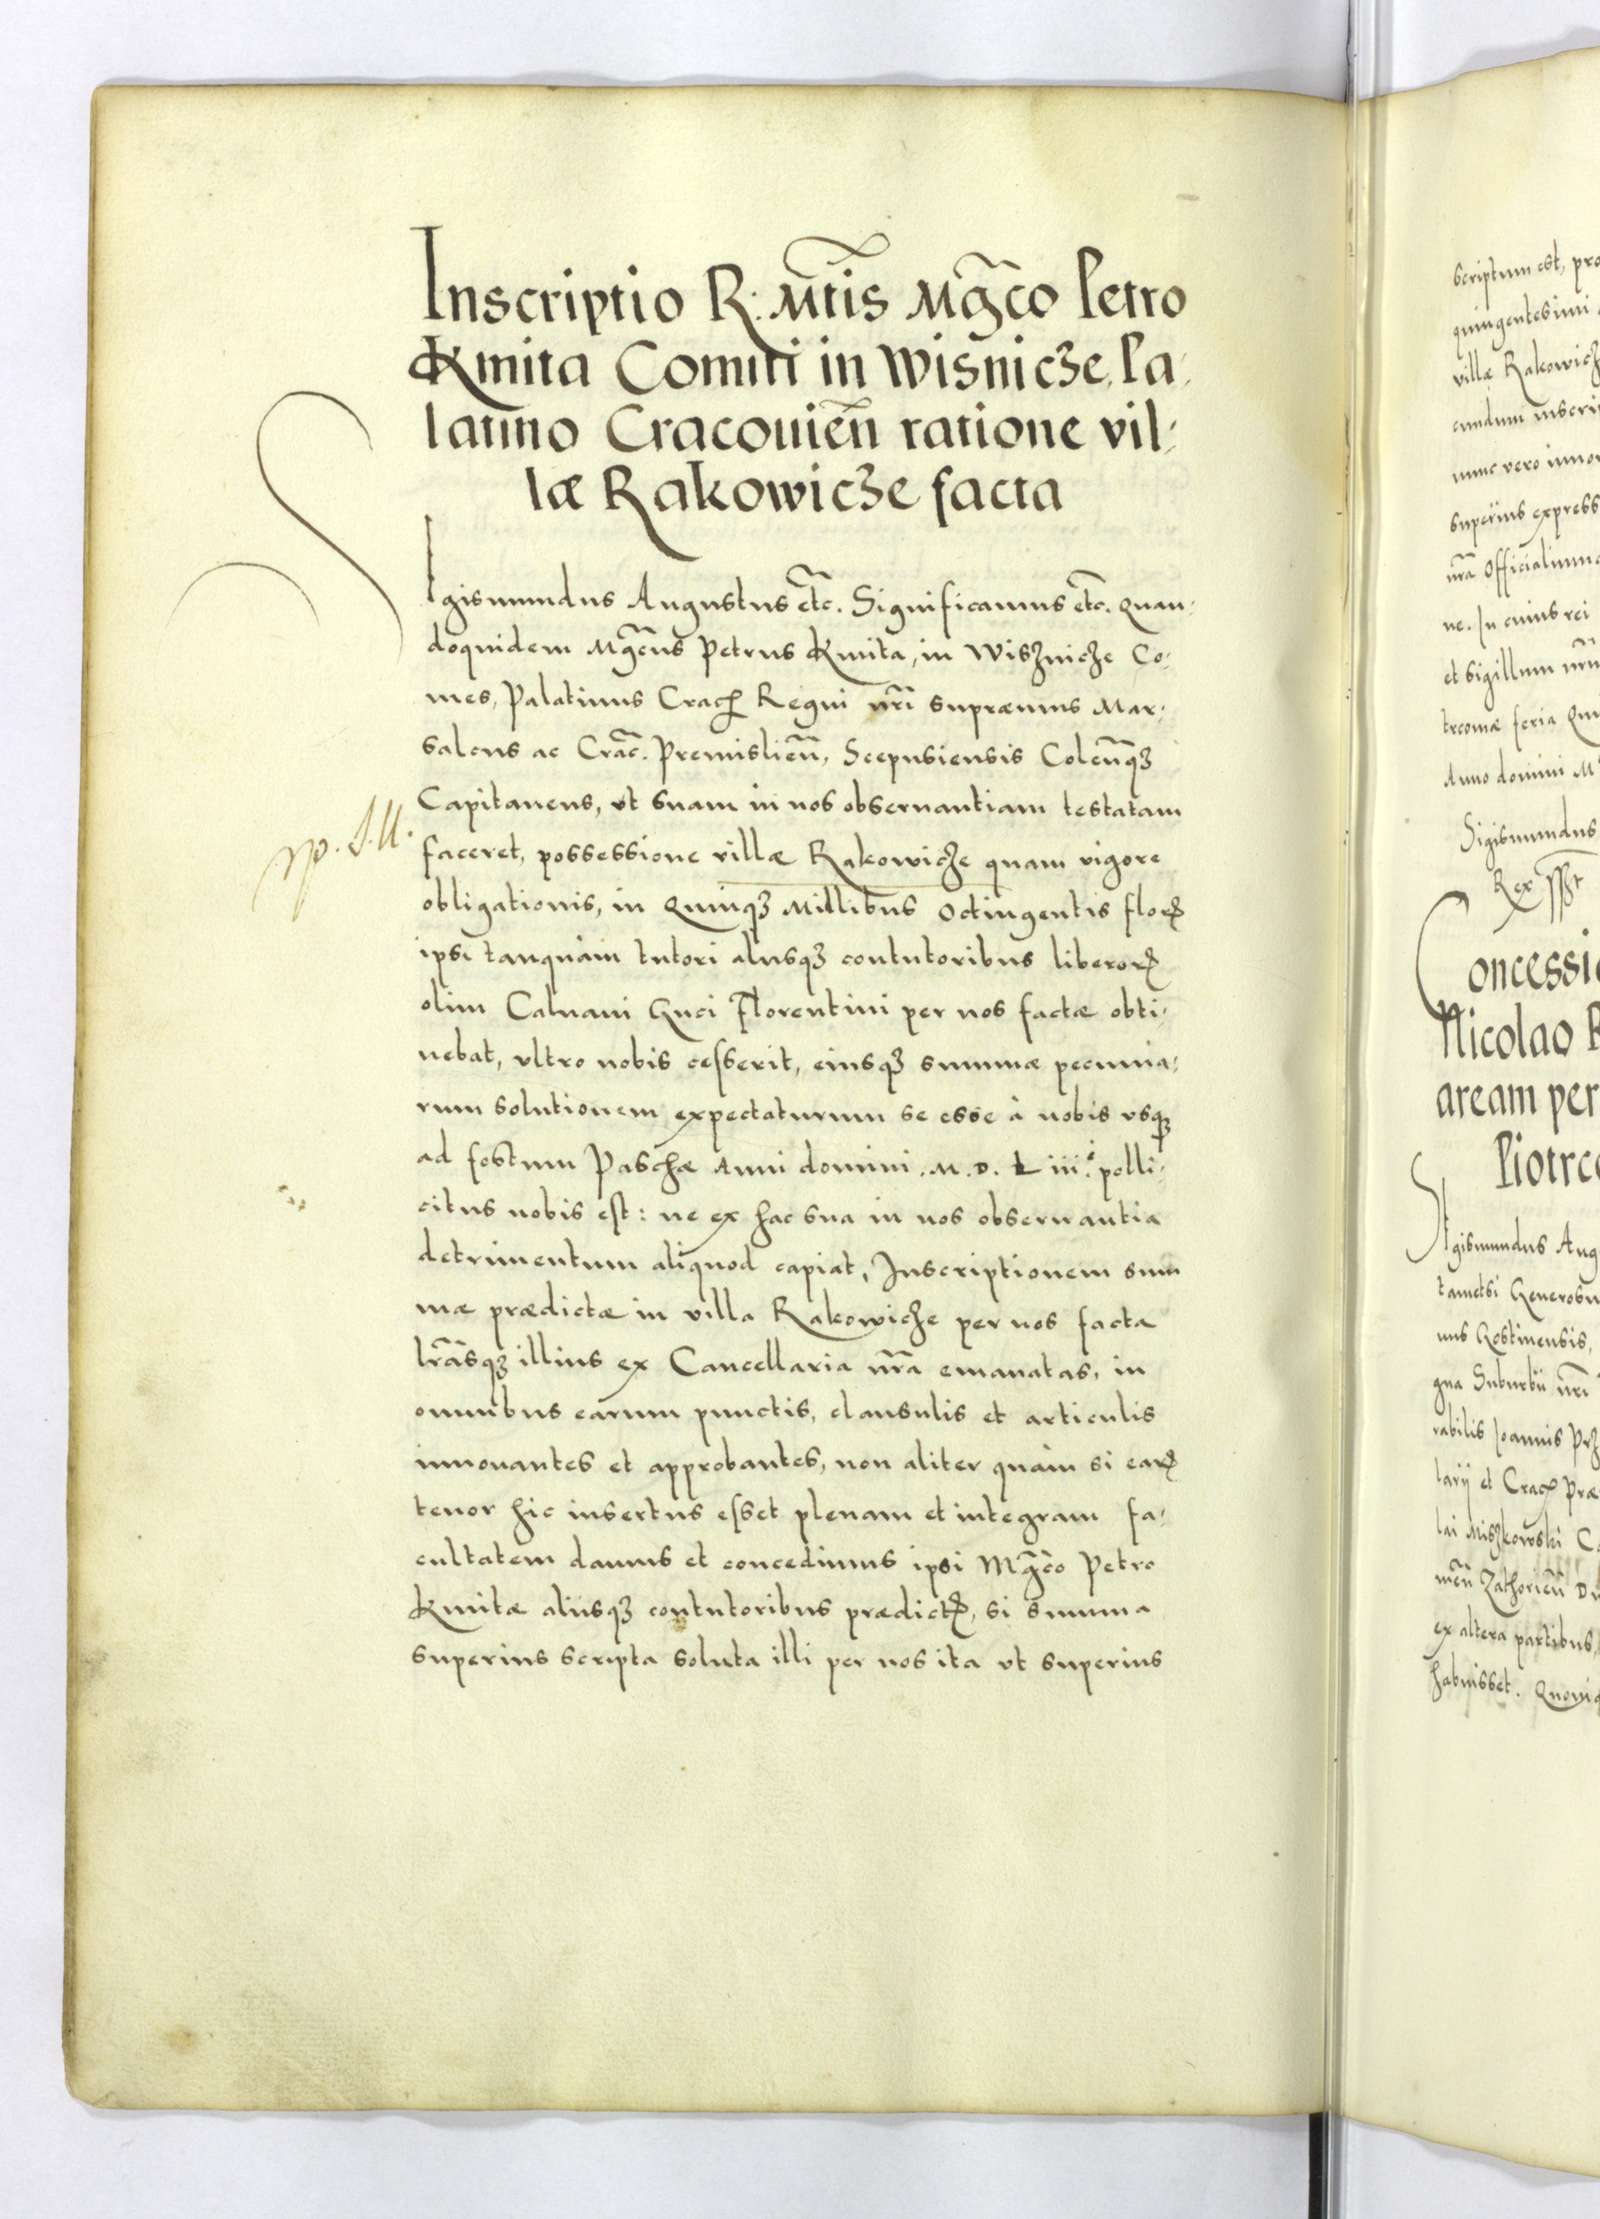 Inscriptio R: Mtis Mgco Petro
Kmita Comiti in Wisnicze, Pa,
latino Cracouien ratione vil,
læ Rakowicze facta
Sigismundus Augustus etc. Significamus etc. Quan,
doquidem Mgcus Petrus Kmita, in Wisznicze Co,
mes, Palatinus Crac Regni nri supræmus Mar,
salcus ac Crac. Premislien, Scepusiensis Colenq3
Capitaneus, vt suam in nos obseruantiam testatam
faceret, possessione villæ Rakowicze quam vigore
obligationis, in Quinq3 Millibus Octingentis flor
ipsi tanquàm tutori alijsq3 contutoribus liberor
olim Caluani Guci Florentini per nos factæ obti,
nebat, vltro nobis cesserit, eiusq3 summæ pecunia,
rum solutionem expectaturum se esse à nobis vsq3
ad festum Paschæ Anni domini .M.D. L iii. polli,
citus nobis est: ne ex hac sua in nos obseruantia
detrimentum aliquod capiat, Inscriptionem sum
mæ prædictæ in villa Rakowicze per nos facta
lrasq3 illius ex Cancellaria nra emanatas, in
omnibus earum punctis, clausulis et articulis
innouantes et approbantes, non aliter quàm si ear
tenor hic insertus esset plenam et integram fa,
cultatem damus et concedimus ipsi Mgco Petro
Kmitæ alijsq3 contutoribus prædict, si summa
superius scripta soluta illi per nos ita vt superius
scriptum est, pro
quingentesimi
villæ Rakowicz
eundum inscri
nunc vero inno
superius express
nra Officialium
ne. In cuius rei
et sigillum nru
trcouiæ feria Qui
Anno domini M
Sigismundus
Rex sst
Concessio
Nicolao R
aream per
Piotrco
Sigismundus Aug
tametsi Generosu
nus Gostinensis,
gna Suburbii nri
rabilis Joannis Prz
tarij et Crac Præ
lai Miszkowski Ca
men Zathorien Du
ex altera partibus,
habuisset. Quoniā